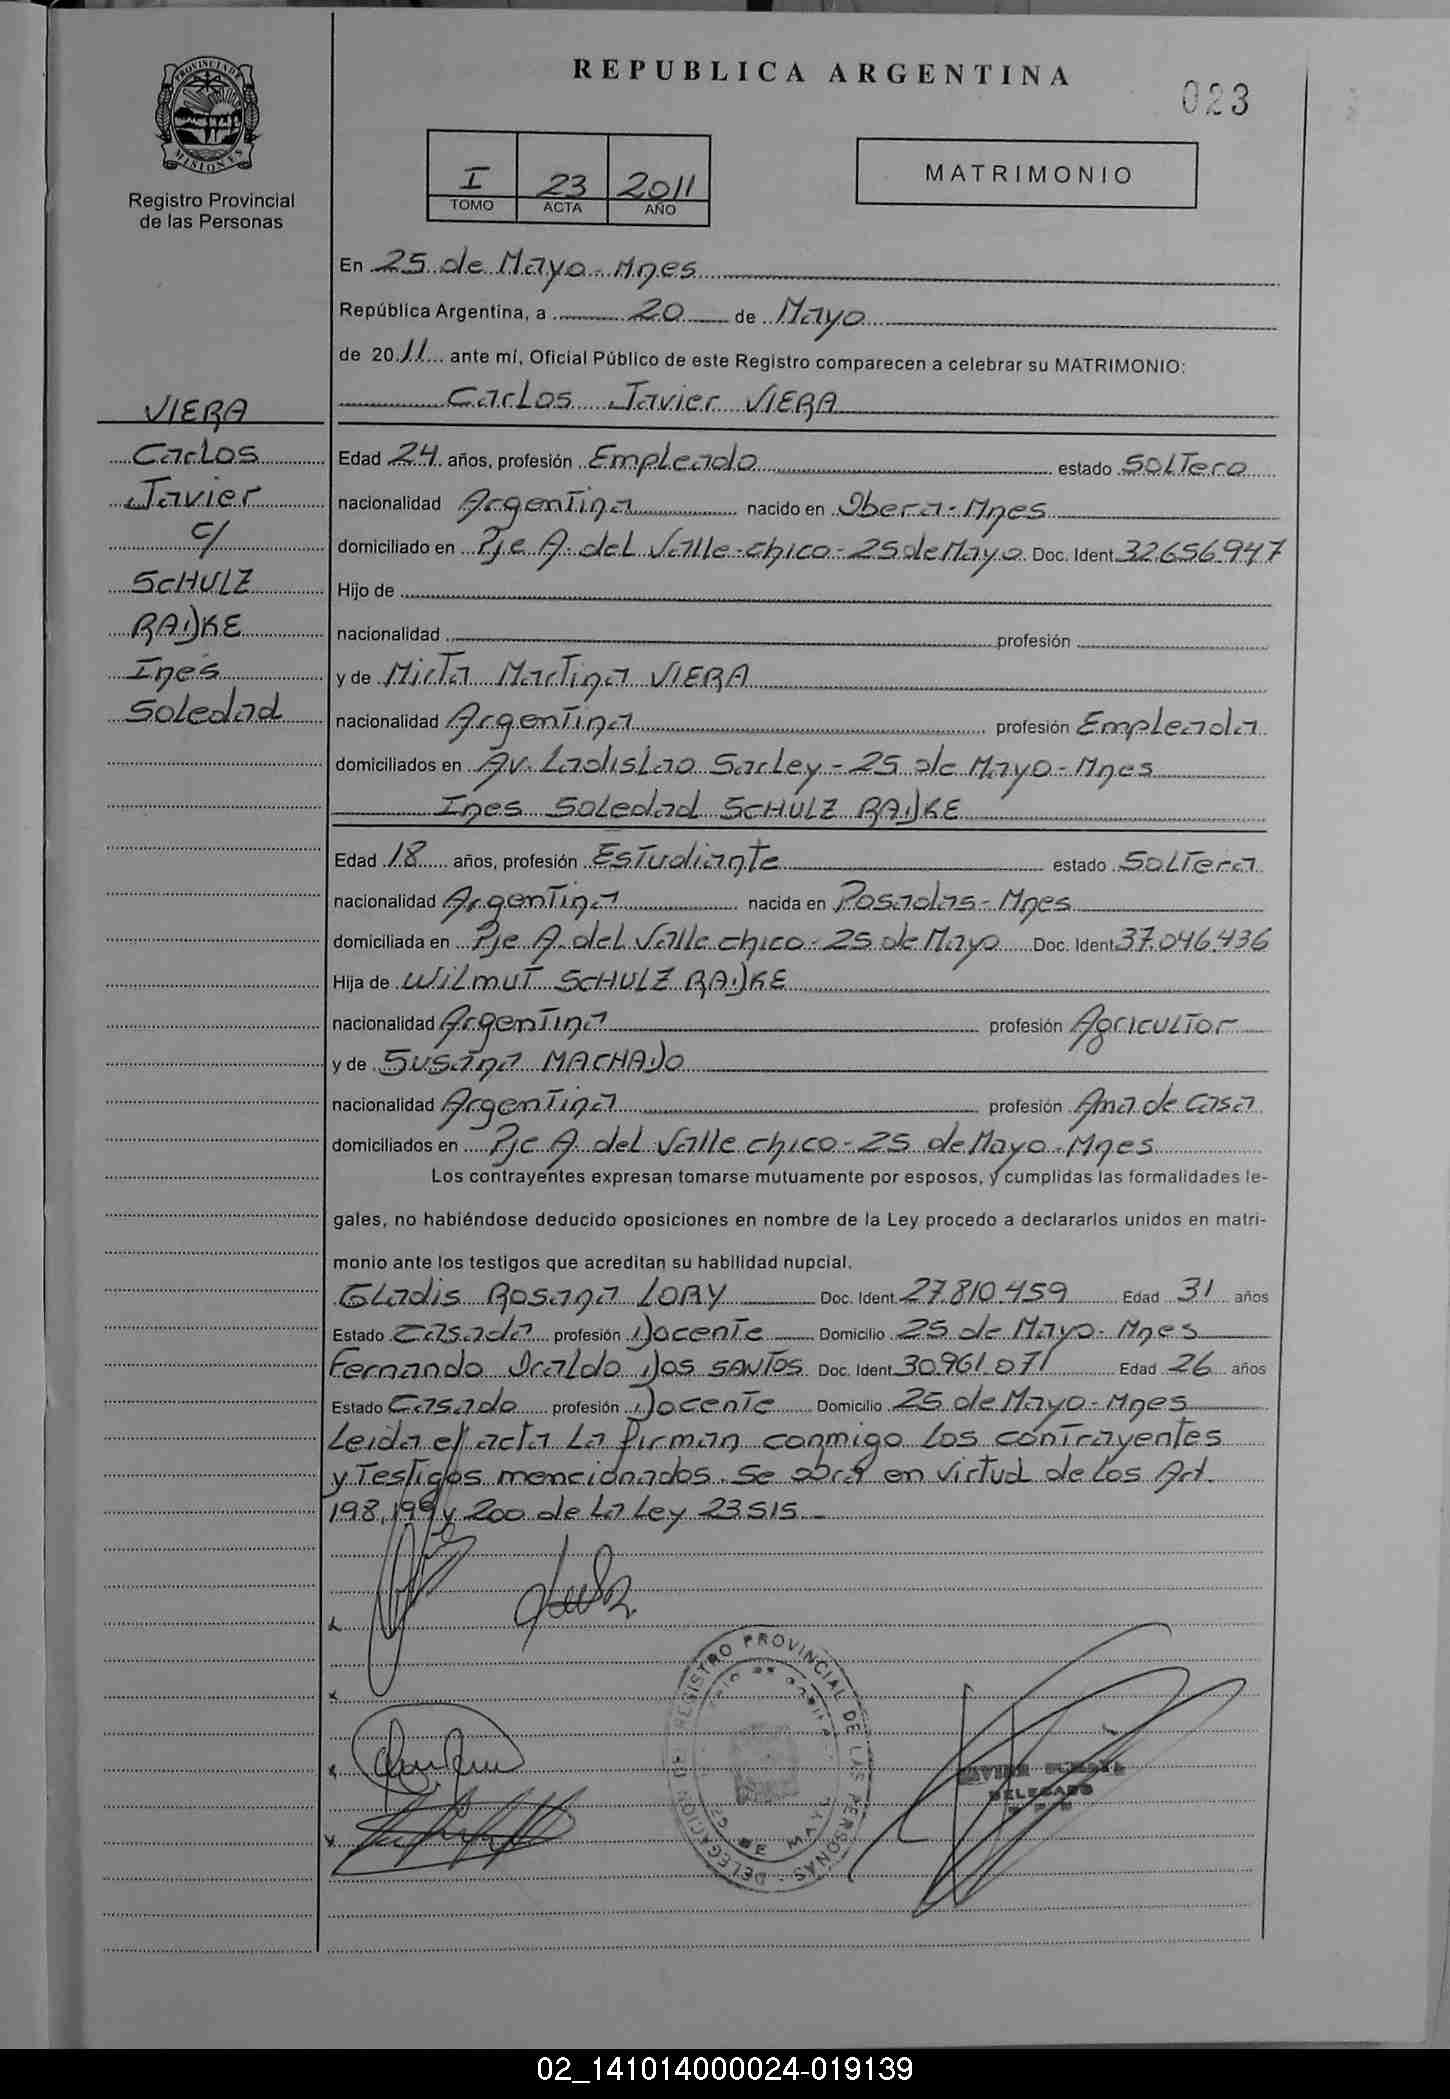 REPUBLICA ARGENTINA
023
PROVINCIA DE MISIONES
Registro Provincial
de las Personas
I 23 2011
TOMO ACTA AÑO
MATRIMONIO
En 25 de Mayo - Mnes
República Argentina, a 20 de Mayo
de 2011 ante mí, Oficial Público de este Registro comparecen a celebrar su MATRIMONIO:
Carlos Javier VIERA
VIERA
Carlos
Javier
c/
SCHULZ
RADKE
Inés
Soledad
Edad 24 años, profesión Empleado estado Soltero
nacionalidad Argentina nacido en Obera - Mnes
domiciliado en Pje A. del Valle chico - 25 de Mayo Doc. Ident. 32.656.947
Hijo de
nacionalidad profesión
y de Mirta Martina VIERA
nacionalidad Argentina profesión Empleada
domiciliados en Av. Ladislao Sarley - 25 de Mayo - Mnes
Ines Soledad SCHULZ RADKE
Edad 18 años, profesión Estudiante estado Soltera
nacionalidad Argentina nacida en Posadas - Mnes
domiciliada en Pje A. del Valle chico - 25 de Mayo Doc. Ident. 37.046.436
Hija de Wilmut SCHULZ RADKE
nacionalidad Argentina profesión Agricultor
y de Susana MACHADO
nacionalidad Argentina profesión Ama de casa
domiciliados en Pje A. del Valle chico - 25 de Mayo - Mnes
Los contrayentes expresan tomarse mutuamente por esposos, y cumplidas las formalidades le-
gales, no habiéndose deducido oposiciones en nombre de la Ley procedo a declararlos unidos en matri-
monio ante los testigos que acreditan su habilidad nupcial.
Gladis Rosana LORY Doc. Ident. 27.810.459 Edad 31 años
Estado Casada profesión Docente Domicilio 25 de Mayo - Mnes
Fernando Oraldo DOS SANTOS Doc. Ident. 30.961.071 Edad 26 años
Estado Casado profesión Docente Domicilio 25 de Mayo - Mnes
Leida el acta la firman conmigo los contrayentes
y Testigos mencionados. Se obra en virtud de los Art.
198, 199 y 200 de la Ley 23.515 -
REGISTRO PROVINCIAL DE LAS PERSONAS
DELEGACION
25 DE MAYO
DELEGADO
02_141014000024-019139